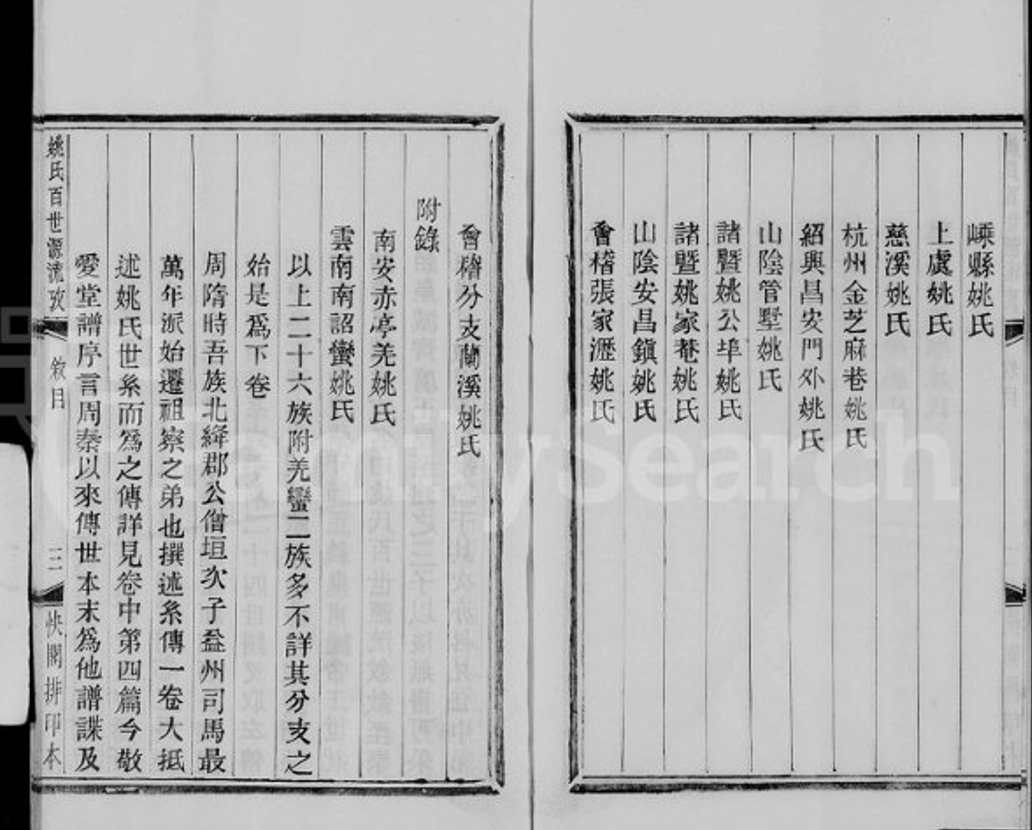 嵊縣姚氏
上虞姚氏
慈溪姚氏
杭州金芝麻巷姚氏
紹興昌安門外姚氏
山陰管墅姚氏
諸暨姚公埠姚氏
諸暨姚家菴姚氏
山陰安昌鎮姚氏
會稽張家瀝姚氏
會稽分支蘭溪姚氏
附錄
南安赤亭羌姚氏
雲南南詔蠻姚氏
以上二十六族附羌蠻二族多不詳其分支之
始是爲下卷
周隋時吾族北絳郡公僧垣次子益州司馬最
萬年派始遷祖察之弟也撰述系傳一卷大抵
述姚氏世系而爲之傳詳見卷中第四篇今敬
愛堂譜序言周秦以來傳世本末爲他譜諜及
姚氏百世源流攷
敘目
三
快閣排印本
FamilySearch